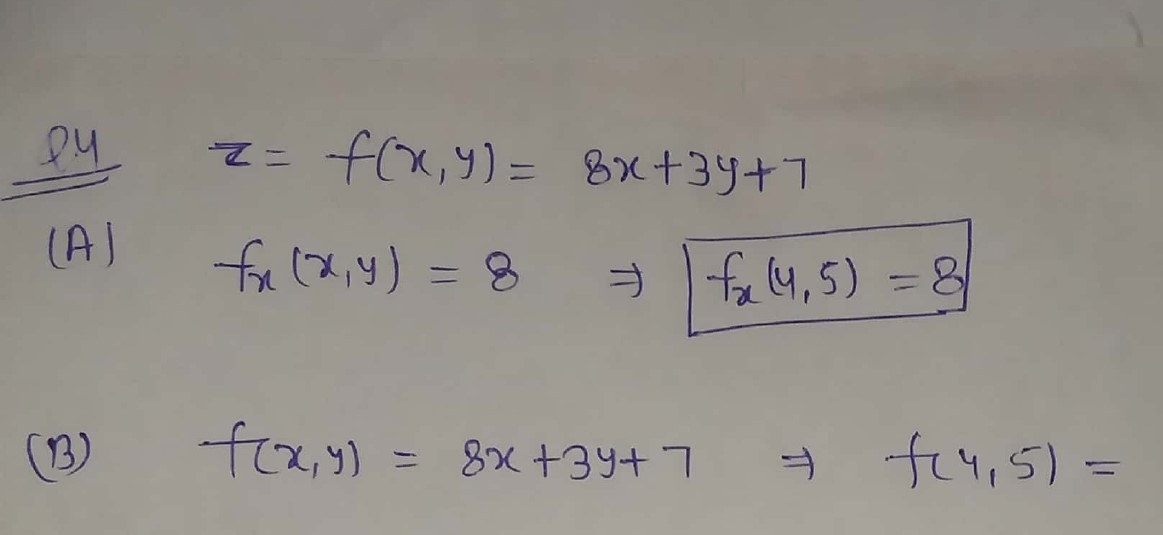 Q.4 z = f(x,y) = 8x+3y+7
(A) fx (x,y) = 8 ⇒ fx (4,5) = 8
(B) f(x,y) = 8x+3y+7 ⇒ f(4,5) =